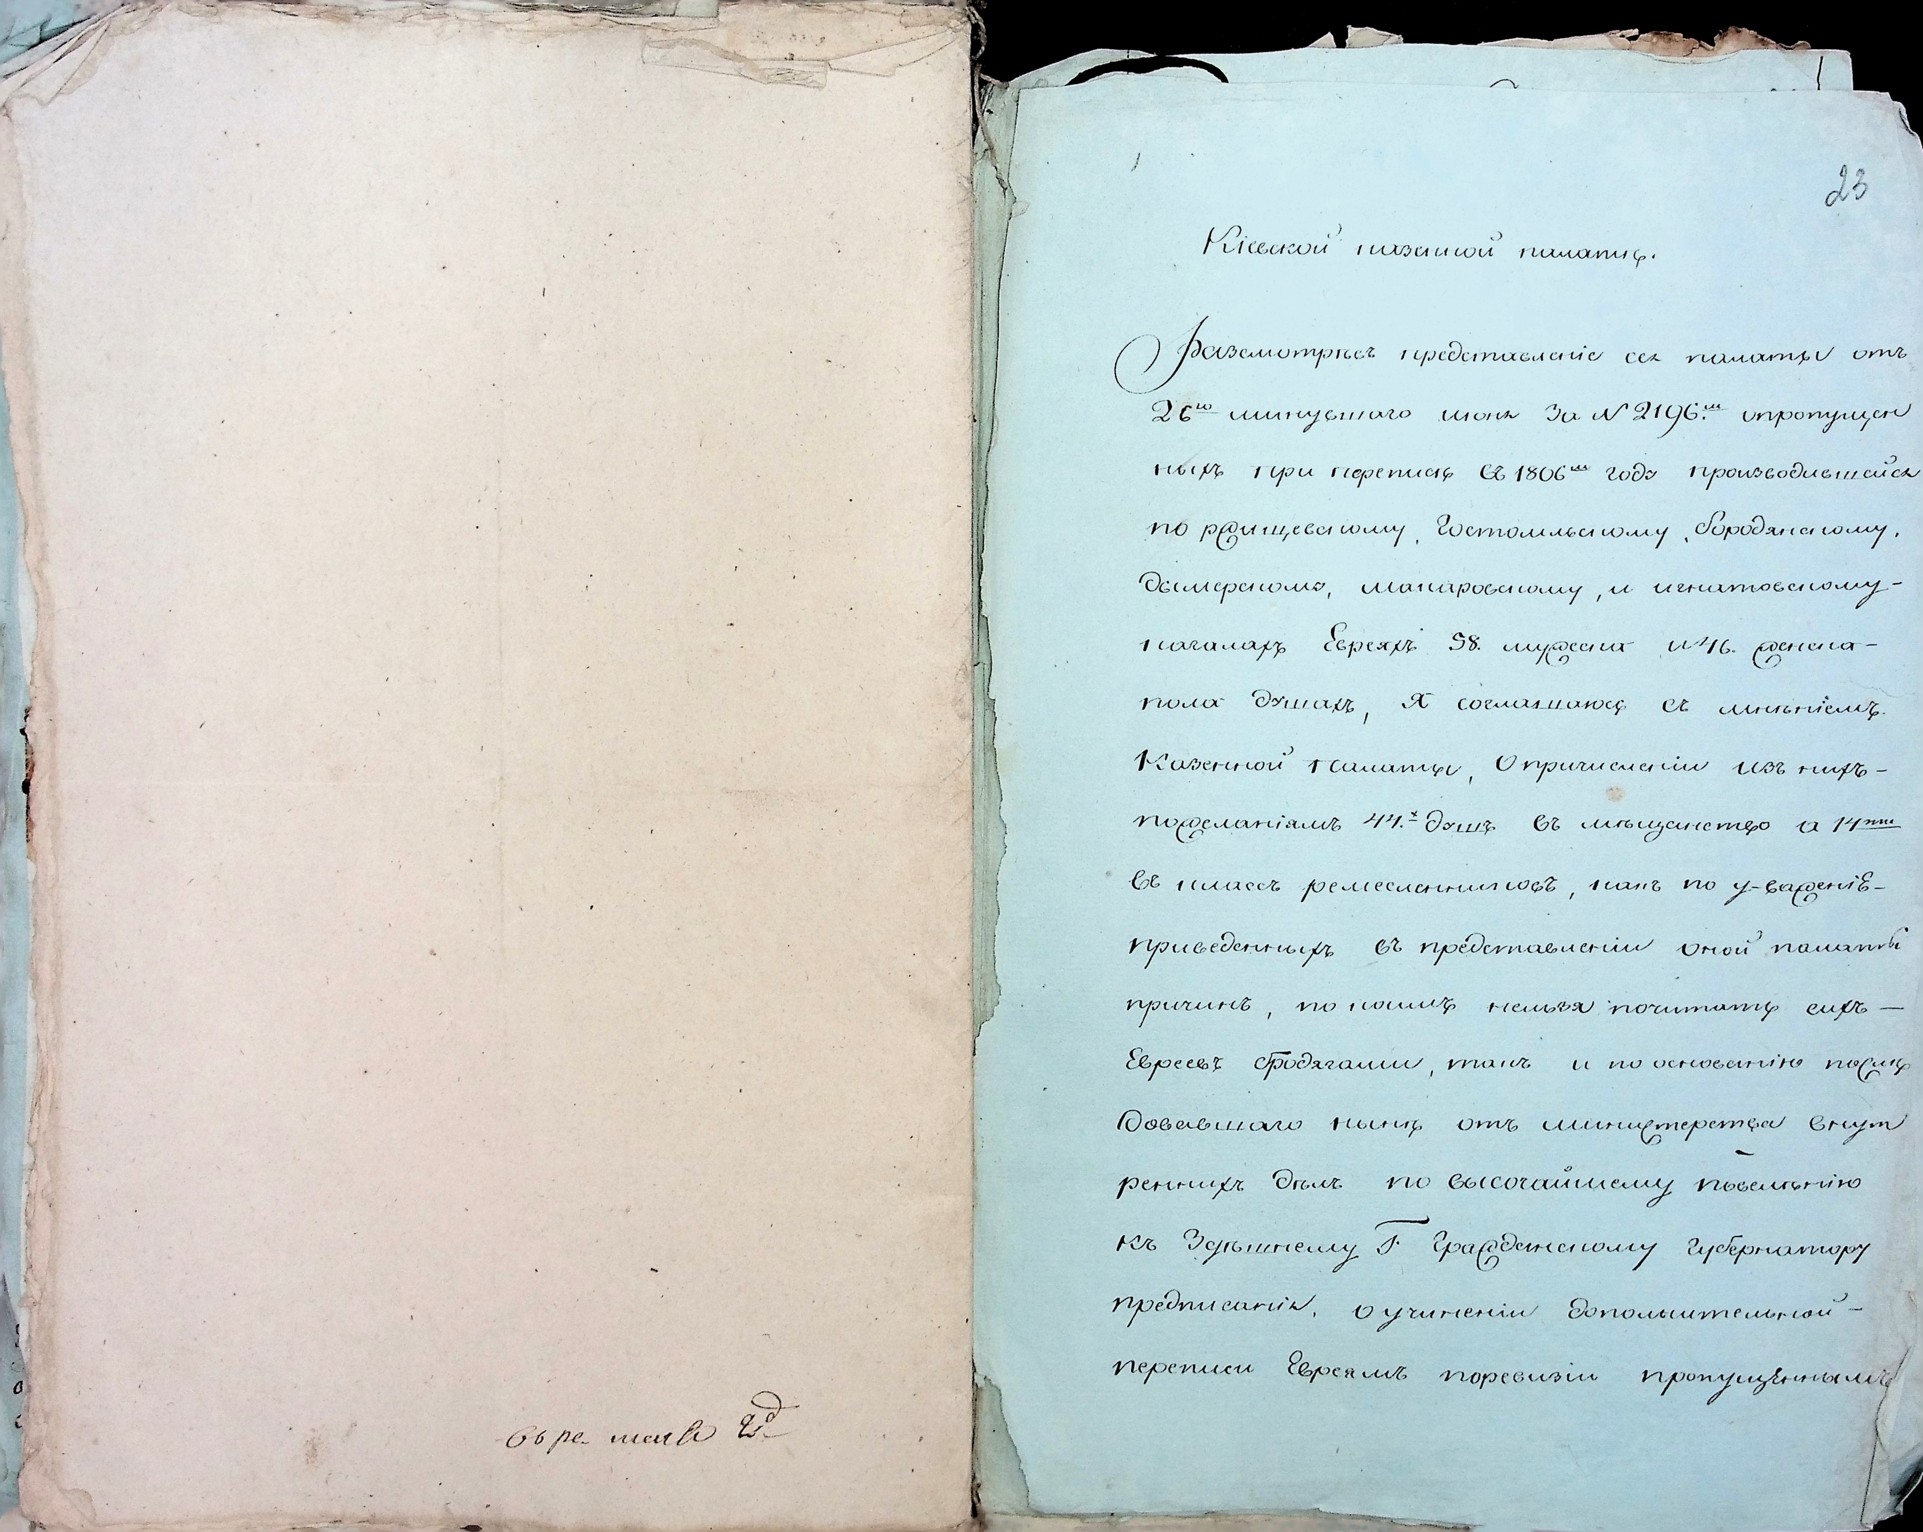 23
Кіевской казенной палатѣ.
Разсмотрѣвъ представленіе сея палаты отъ
26го минувшаго июня За N 2196.м опропущен
ныхъ при переписѣ въ 1806м году производившейся
по ржищевскому, Гостомльскому, бородянскому,
дымерскому, макаровскому, и игнатовскому-
кагалахъ Евреяхъ 58. мужеска и 46. женска-
пола душахъ, Я соглашаюсь съ мнѣніемъ
Казенной палаты, О причисленіи изъ нихъ-
пожеланіямъ 44.х душъ въ мѣщанство а 14ти
въ классъ ремесленниковъ, какъ по у-важеніе-
приведенныхъ въ представленіи оной палаты
причинъ, по коимъ нельзя почитать сихъ —
Евреевъ бродягами, такъ и по основанію послѣ
довавшаго нынѣ отъ министерства внут
ренних дѣлъ по высочайшему повелѣнію
къ Здѣшнему Г. Гражданскому Губернатору
предписанія, о учиненіи дополнительной-
переписи Евреямъ поревизіи пропущеннымъ